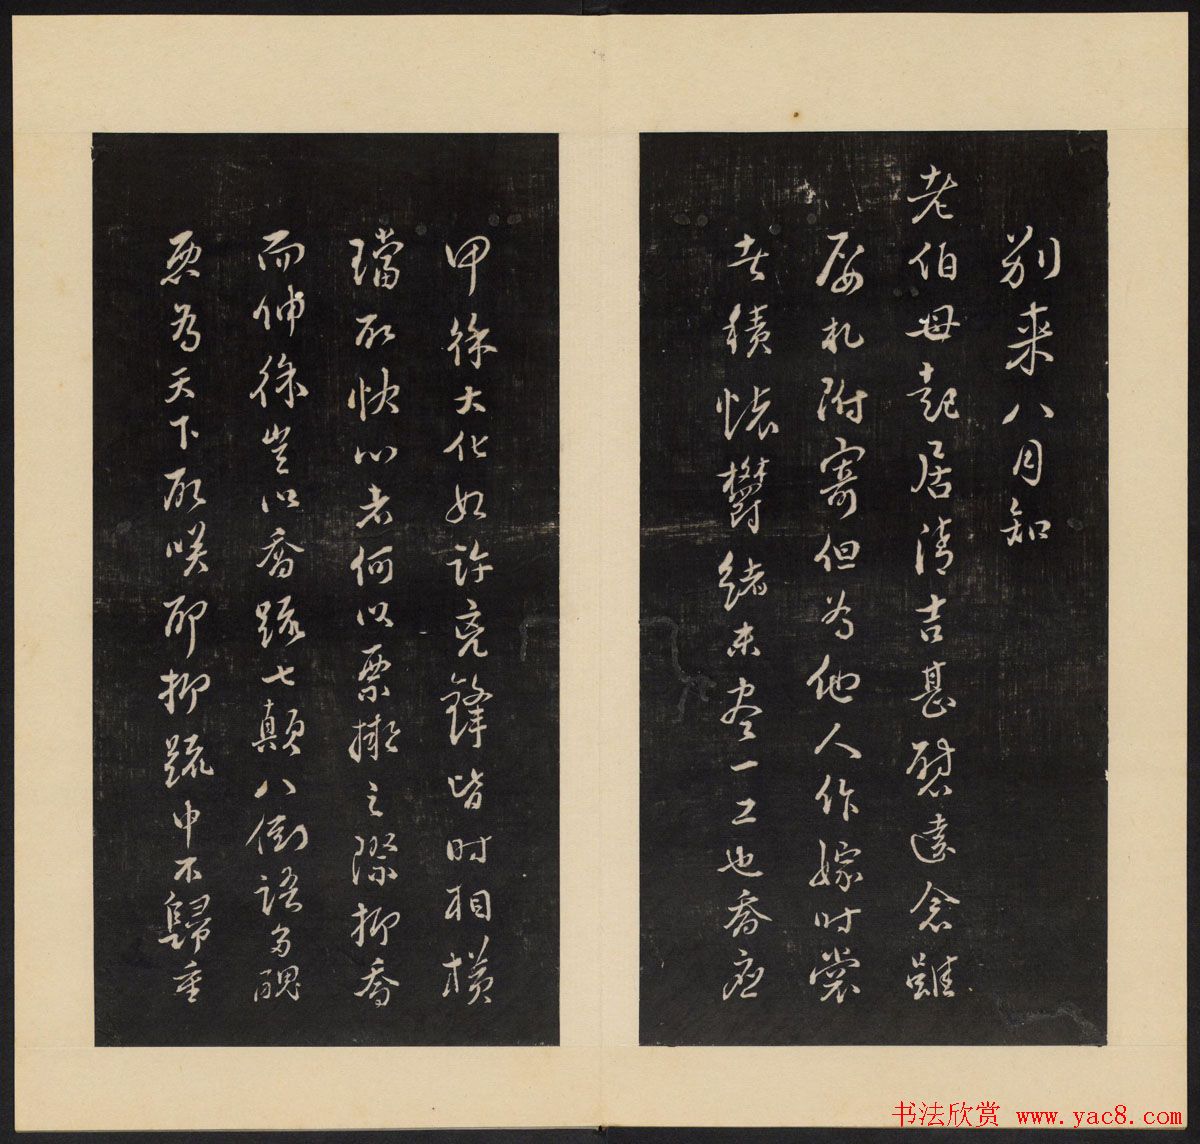 别来八月知
老伯母起居清吉甚慰远念虽
屡札附寄但为他人作嫁时裳
者积怀郁绪未尽一二也乔应
甲徐大化如许亮锋皆时相横
珰所快心者何以票拟之际抑乔
而伸徐岂以乔疏七颠八倒语多丑
恶为天下所唉耶抑疏中不归重
书法欣赏 www.yac8.com